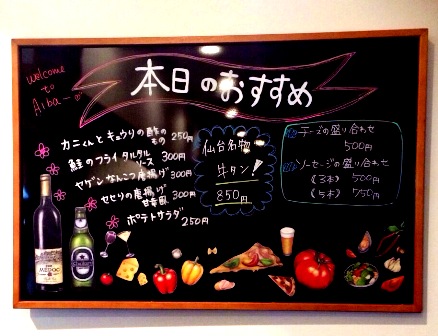 welcome
to
Aiba~
本日のおすすめ
カニくんとキュウリの酢のもの 250円
鮭のフライ タルタルソース 300円
ヤゲンなんこつ唐揚げ 300円
セセリの唐揚げ 甘辛風 300円
ポテトサラダ 250円
仙台名物
牛タン!
850円
チーズの盛り合わせ
500円
ソーセージの盛り合わせ
(3本) 500円
(5本) 750円
MEDOC